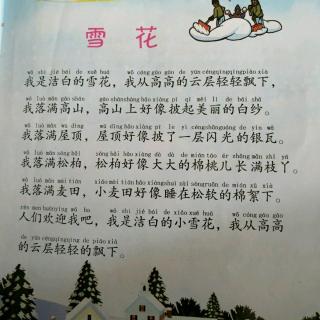 雪 花
wǒ shì jié bái de xuě huā wǒ cóng gāo gāo de yún céng qīng qīng piāo xià
我是洁白的雪花，我从高高的云层轻轻飘下，
wǒ luò mǎn gāo shān gāo shān shàng hǎo xiàng pī qǐ měi lì de bái shā
我落满高山，高山上好像披起美丽的白纱。
wǒ luò mǎn wū dǐng wū dǐng hǎo xiàng pī le yì céng shǎn guāng de yín wǎ
我落满屋顶，屋顶好像披了一层闪光的银瓦。
wǒ luò mǎn sōng bǎi sōng bǎi hǎo xiàng dà dà de mián táo ér zhǎng mǎn zhī yā
我落满松柏，松柏好像大大的棉桃儿长满枝丫。
wǒ luò mǎn mài tián xiǎo mài tián hǎo xiàng shuì zài sōng ruǎn de mián xù xià
我落满麦田，小麦田好像睡在松软的棉絮下。
rén men huān yíng wǒ ba wǒ shì jié bái de xiǎo xuě huā wǒ cóng gāo gāo
人们欢迎我吧，我是洁白的小雪花，我从高高
de yún céng qīng qīng de piāo xià
的云层轻轻的飘下。